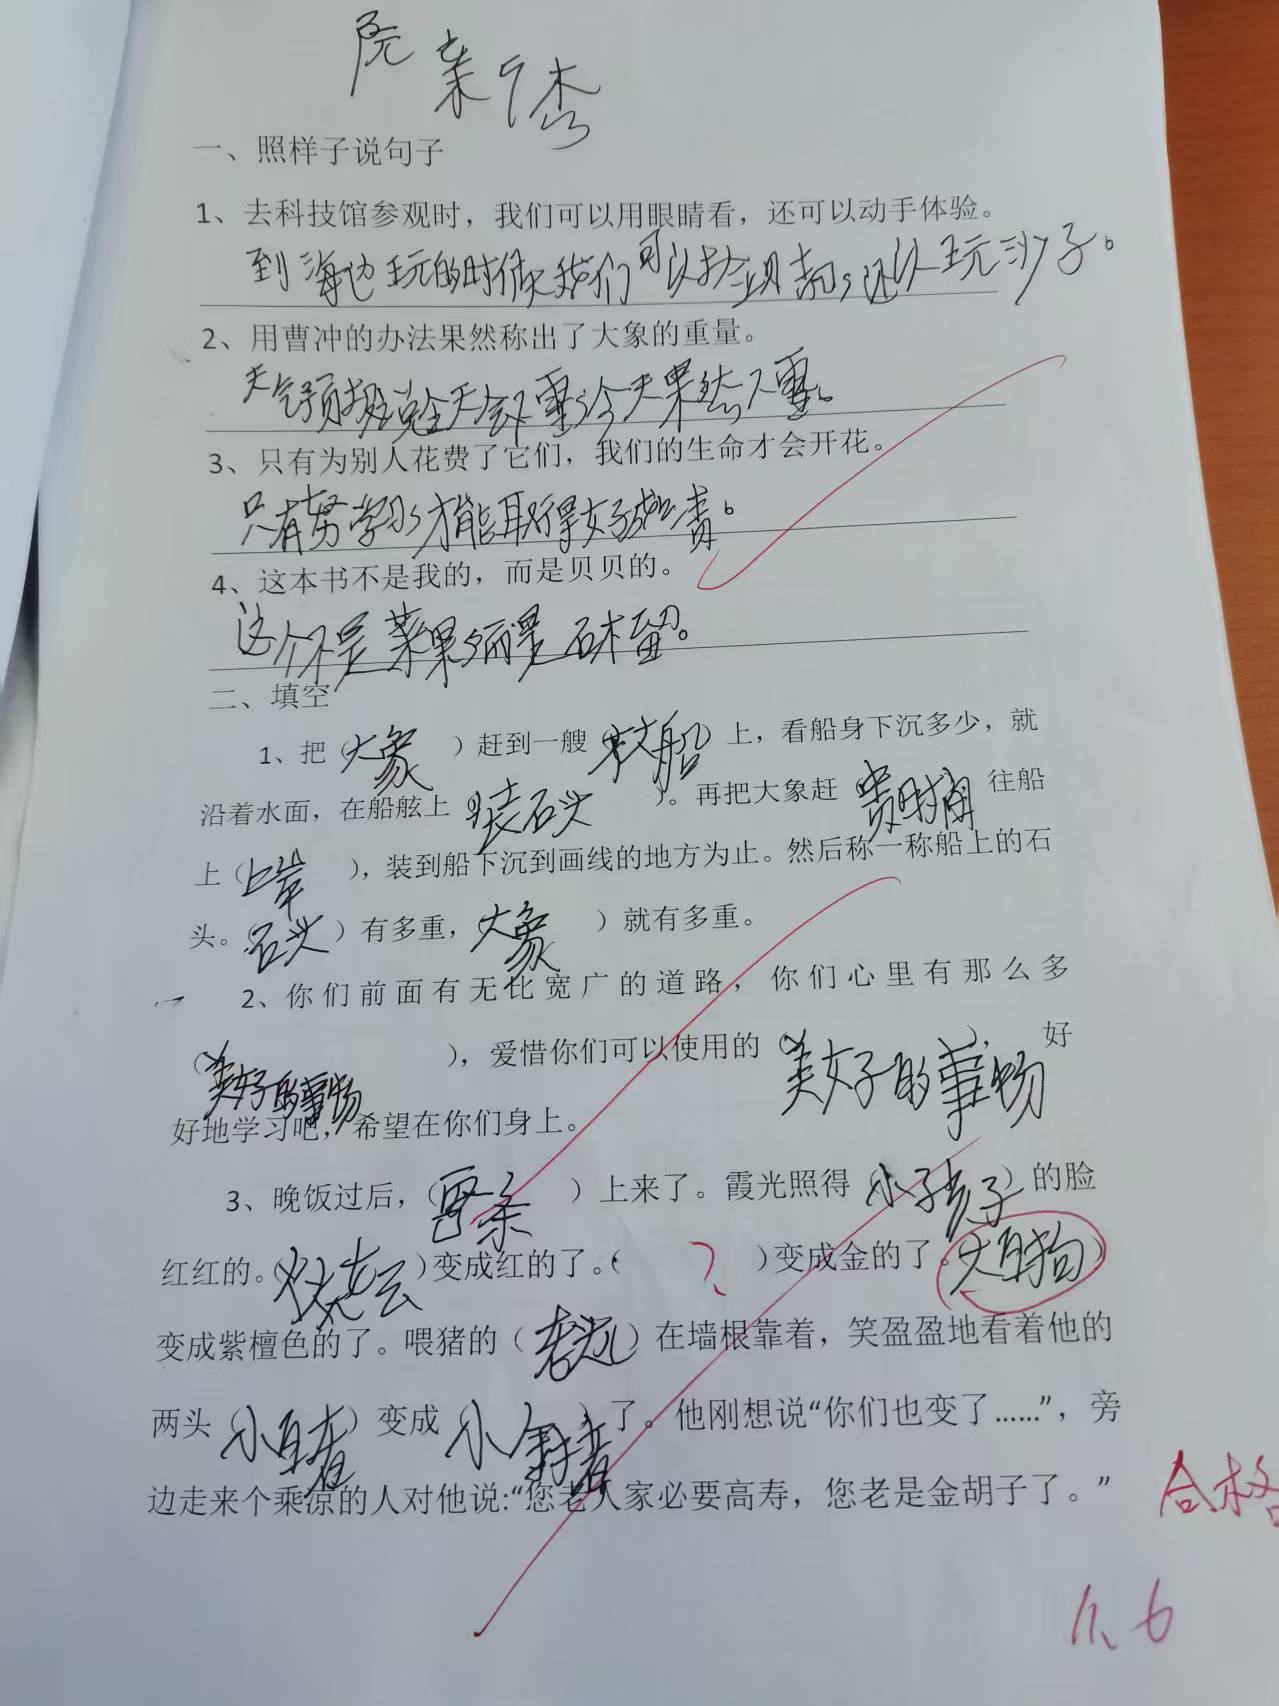 一、照样子说句子
1、去科技馆参观时，我们可以用眼睛看，还可以动手体验。
到海边玩的时候，我们可以捡贝壳，还以玩沙子。
2、用曹冲的办法果然称出了大象的重量。
天气预报说今天会下雪，今天果然下雪。
3、只有为别人花费了它们，我们的生命才会开花。
只有努学习，才能取得好成责。
4、这本书不是我的，而是贝贝的。
这个不是苹果，而是石木留。
二、填空
1、把（大象）赶到一艘（大船）上，看船身下沉多少，就
沿着水面，在船舷上（装石头）。再把大象赶 往船
上（上岸），装到船下沉到画线的地方为止。然后称一称船上的石
头。石头）有多重，（大象）就有多重。
2、你们前面有无比宽广的道路，你们心里有那么多
（美好的事物），爱惜你们可以使用的（美好的事物），好
好地学习吧，希望在你们身上。
3、晚饭过后，（ ）上来了。霞光照得（小孩子）的脸
红红的。（ ）变成红的了。（ ？ ）变成金的了。（大自狗）
变成紫檀色的了。喂猪的（老 ）在墙根靠着，笑盈盈地看着他的
两头（小白猪）变成 小金猪）了。他刚想说“你们也变了……”，旁
边走来个乘凉的人对他说:“您老人家必要高寿，您老是金胡子了。”
合格
11、6